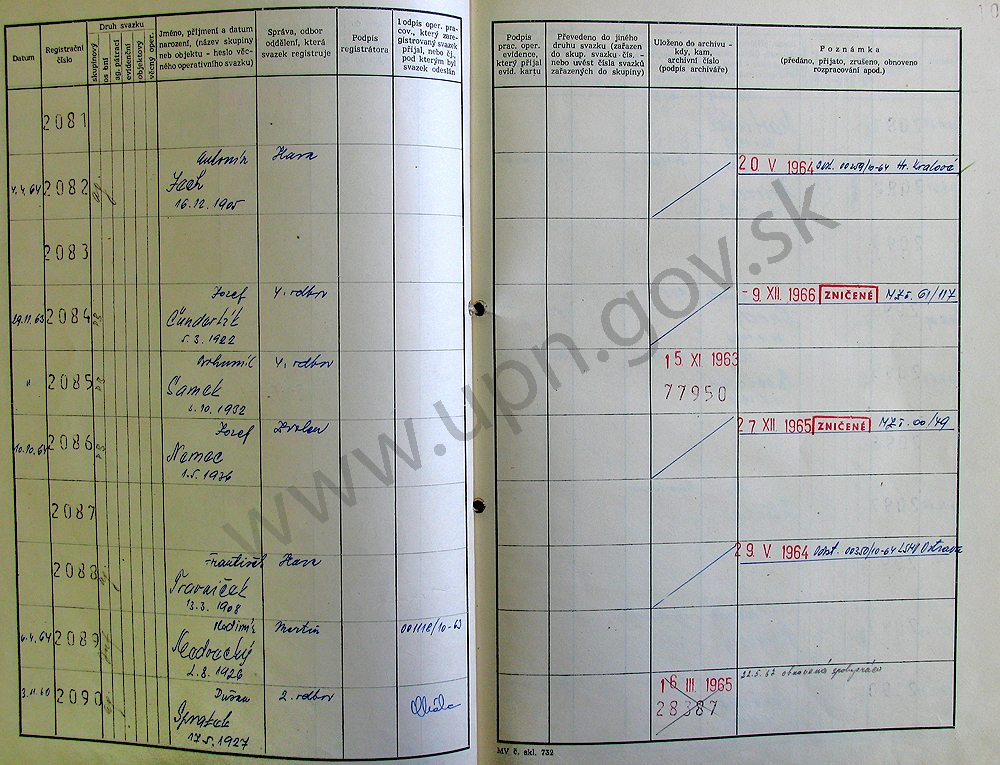 Datum
Registrační číslo
Druh svazku
skupinový
os bní
ag. pátrací
evidenční
objektový
věcný oper.
Jméno, příjmení a datum
narození, (název skupiny
neb objektu - heslo věc-
ného operativního svazku)
Správa, odbor
oddělení, která
svazek registruje
Podpis
registrátora
Podpis oper. pra-
cov., který zare-
gistrovaný svazek
přijal, nebo č. j.
pod kterým byl
svazek odeslán
Podpis
prac. oper.
evidence,
který přijal
evid. kartu
Převedeno do jiného
druhu svazku (zařazen
do skup. svazku čís. -
nebo uvést čísla svazků
zařazených do skupiny)
Uloženo do archivu -
kdy, kam,
archivní číslo
(podpis archiváře)
Poznámka
(předáno, přijato, zrušeno, obnoveno
rozpracování apod.)
2081
4.4.64 2082 Antonín Hava
Zach
16.12.1905
20 V 1964 Odst. 00259/10-64 Hr. Králové
2083
29.11.63 2084 Jozef 4. odbor
Čunderlík
5.3.1922
-9. XII. 1966 ZNIČENÉ MZ č. 61/117
" 2085 Bohumil 4. odbor
Samek
6.10.1932
15. XI. 1963
77950
10.10.64 2086 Jozef Zvolen
Nemec
1.5.1936
27 XII. 1965 ZNIČENÉ MZ č. 00/49
2087
2088 František Hava
Travníček
13.3.1908
29. V. 1964 Odst. 00350/10-64 LSNB Ostrava
6.4.64 2089 Vladimír Martin 001112/10-63
2.8.1926
3.11.60 2090 Dušan 2. odbor
17.5.1927
16 III. 1965
28387
22.5.63 obnovená spolupráce
MV č. skl. 732
www.upn.gov.sk